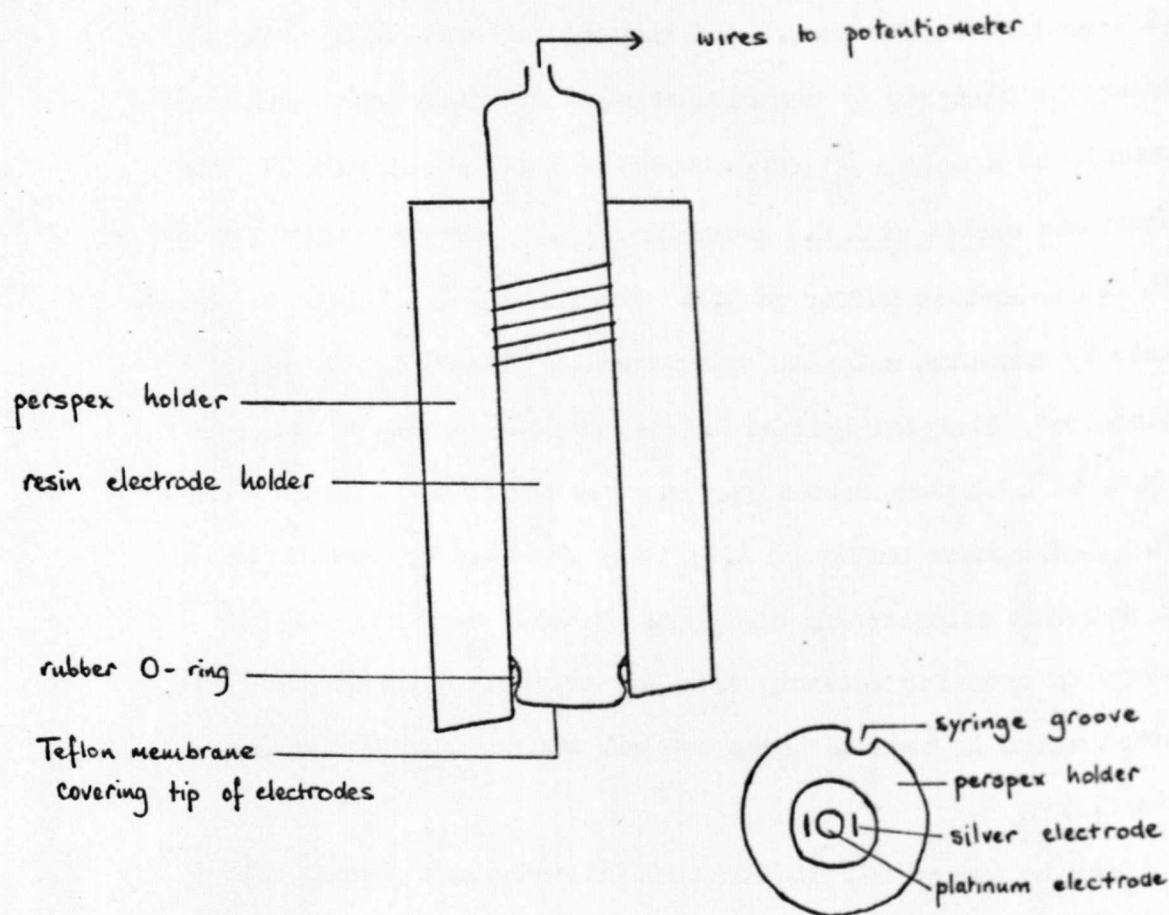 wires to potentiometer
perspex holder
resin electrode holder
rubber O-ring
Teflon membrane
covering tip of electrodes
syringe groove
perspex holder
silver electrode
platinum electrode